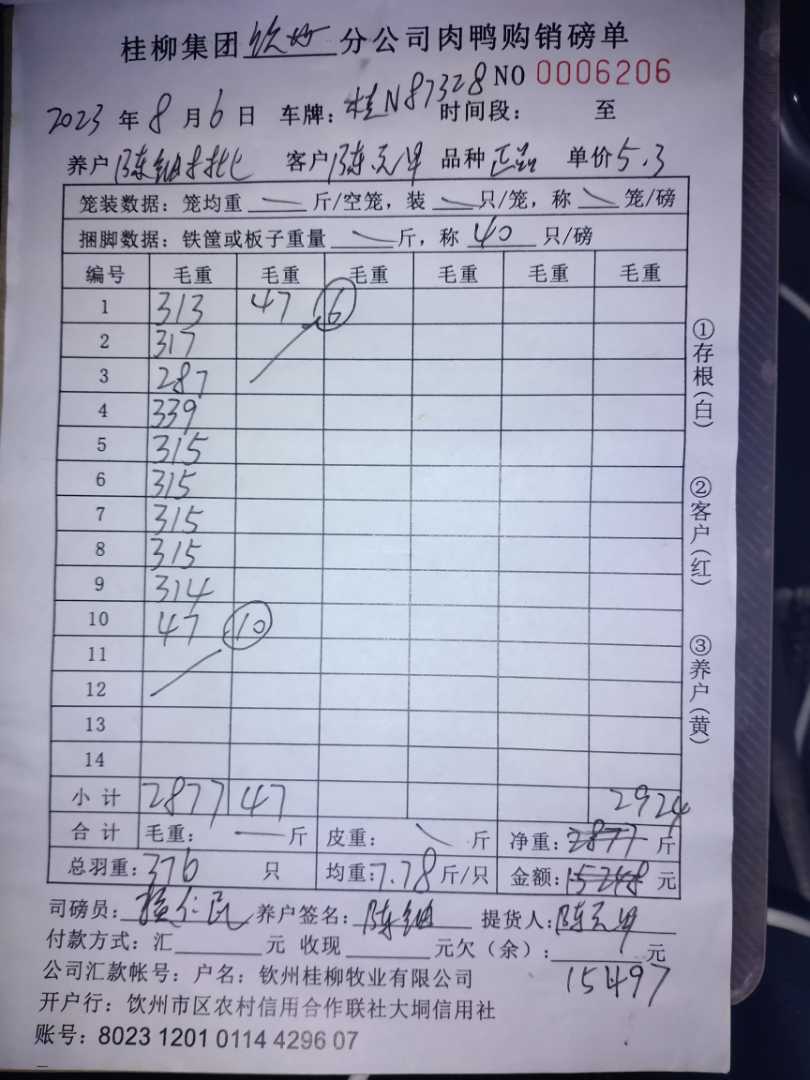 桂柳集团钦州分公司肉鸭购销磅单
NO 0006206
2023年8月6日 车牌：桂N87328 时间段： 至
养户 陈 客户 陈 品种 正品 单价 5.3
笼装数据：笼均重 — 斤/空笼，装 — 只/笼，称 — 笼/磅
捆脚数据：铁筐或板子重量 — 斤，称 40 只/磅
编号 毛重 毛重 毛重 毛重 毛重 毛重
1 313 47 6
2 317
3 287
4 339
5 315
6 315
7 315
8 315
9 314
10 47 10
11
12
13
14
小计 2877 47 2924
合计 毛重： — 斤 皮重： 斤 净重：2877 斤
总羽重：376 只 均重：7.78 斤/只 金额：15248 元
司磅员： 养户签名：陈 提货人：陈
付款方式：汇 元 收现 元欠（余）： 元
15497
公司汇款帐号：户名：钦州桂柳牧业有限公司
开户行：钦州市区农村信用合作联社大垌信用社
账号：8023 1201 0114 4296 07
①存根（白）
②客户（红）
③养户（黄）